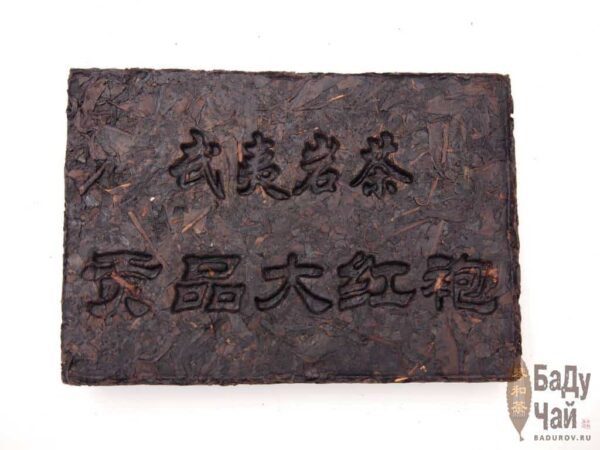 武夷岩茶
贡品大红袍
和茶
БаДу
Чай
BADUROV.RU